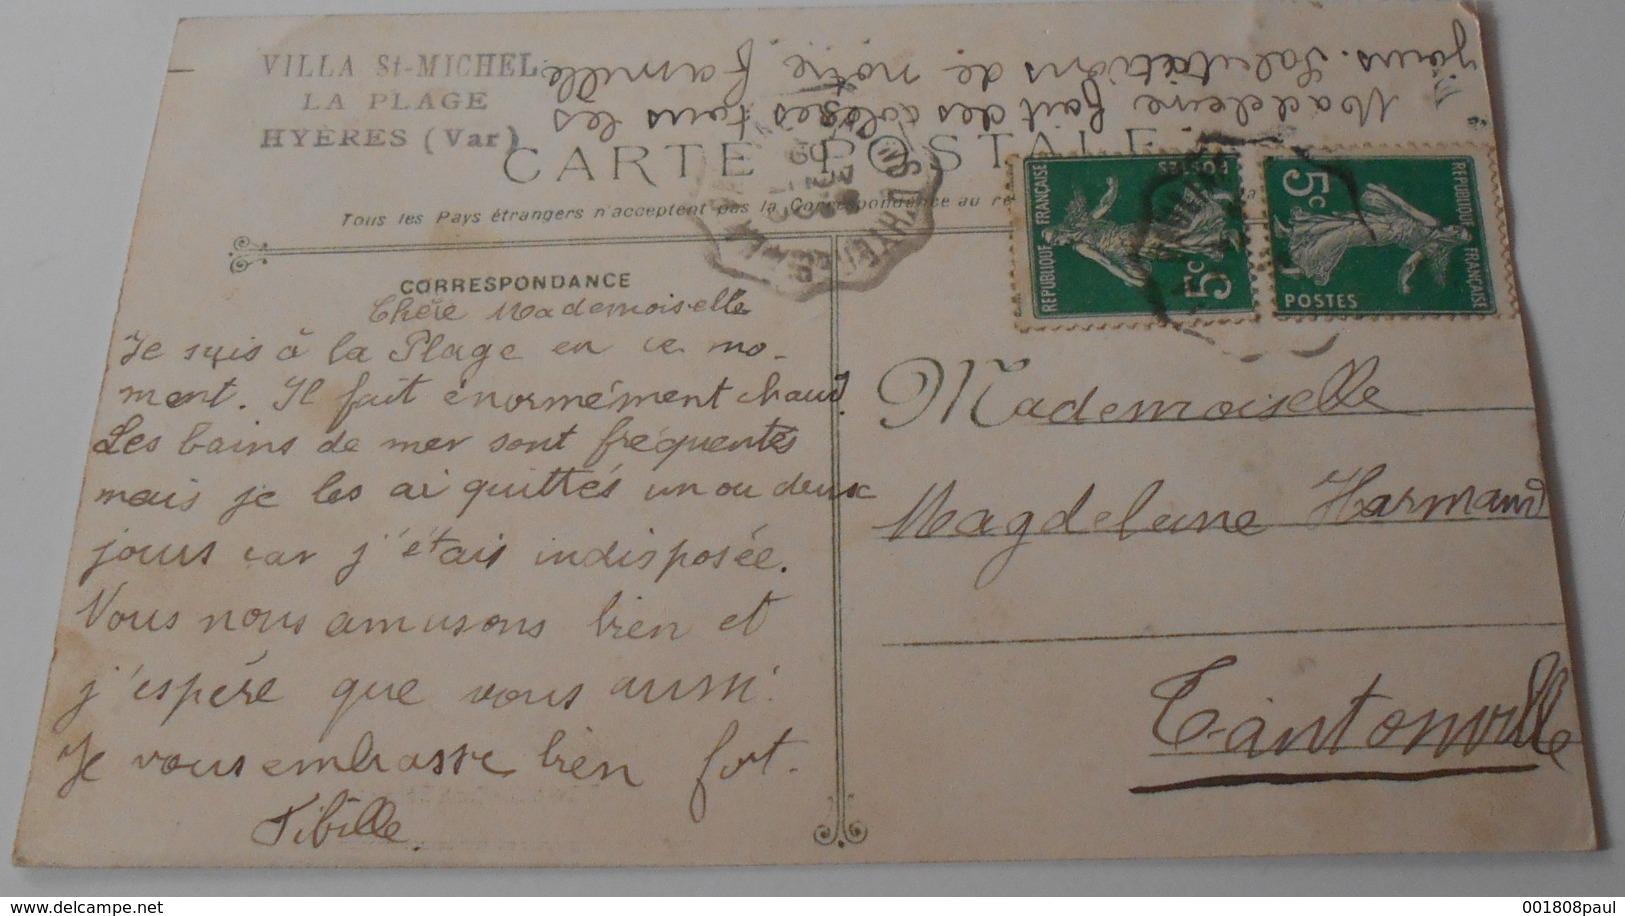 VILLA St-MICHEL
LA PLAGE
HYÈRES (Var)
Madeleine fait des  tous les
jours. Salutations de notre famille
CARTE POSTALE
Tous les Pays étrangers n'acceptent pas la Correspondance au
CORRESPONDANCE
Chère Mademoiselle
Je suis à la Plage en ce mo-
ment. Il fait énormément chaud.
Les bains de mer sont fréquentés
mais je les ai quittés un ou deux
jours car j'étais indisposée.
Nous nous amusons bien et
j'espère que vous aussi.
Je vous embrasse bien fort.
Sibille.
RÉPUBLIQUE FRANÇAISE
POSTES
5c
RÉPUBLIQUE FRANÇAISE
POSTES
5c
Mademoiselle
Magdeleine Harmand
Tantonville
www.delcampe.net
001808paul